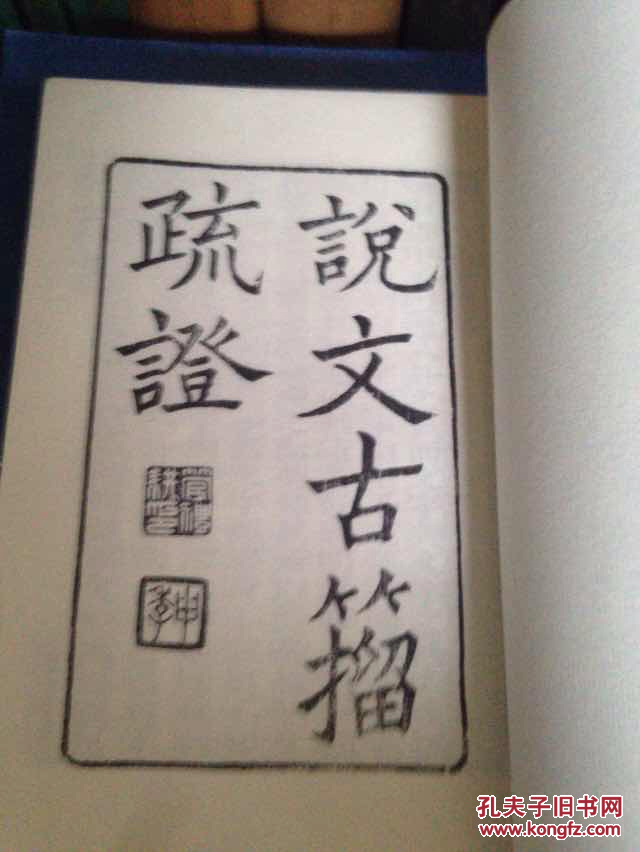 說文古籀
疏證
管禮耕印
申季
孔夫子旧书网
www.kongfz.com